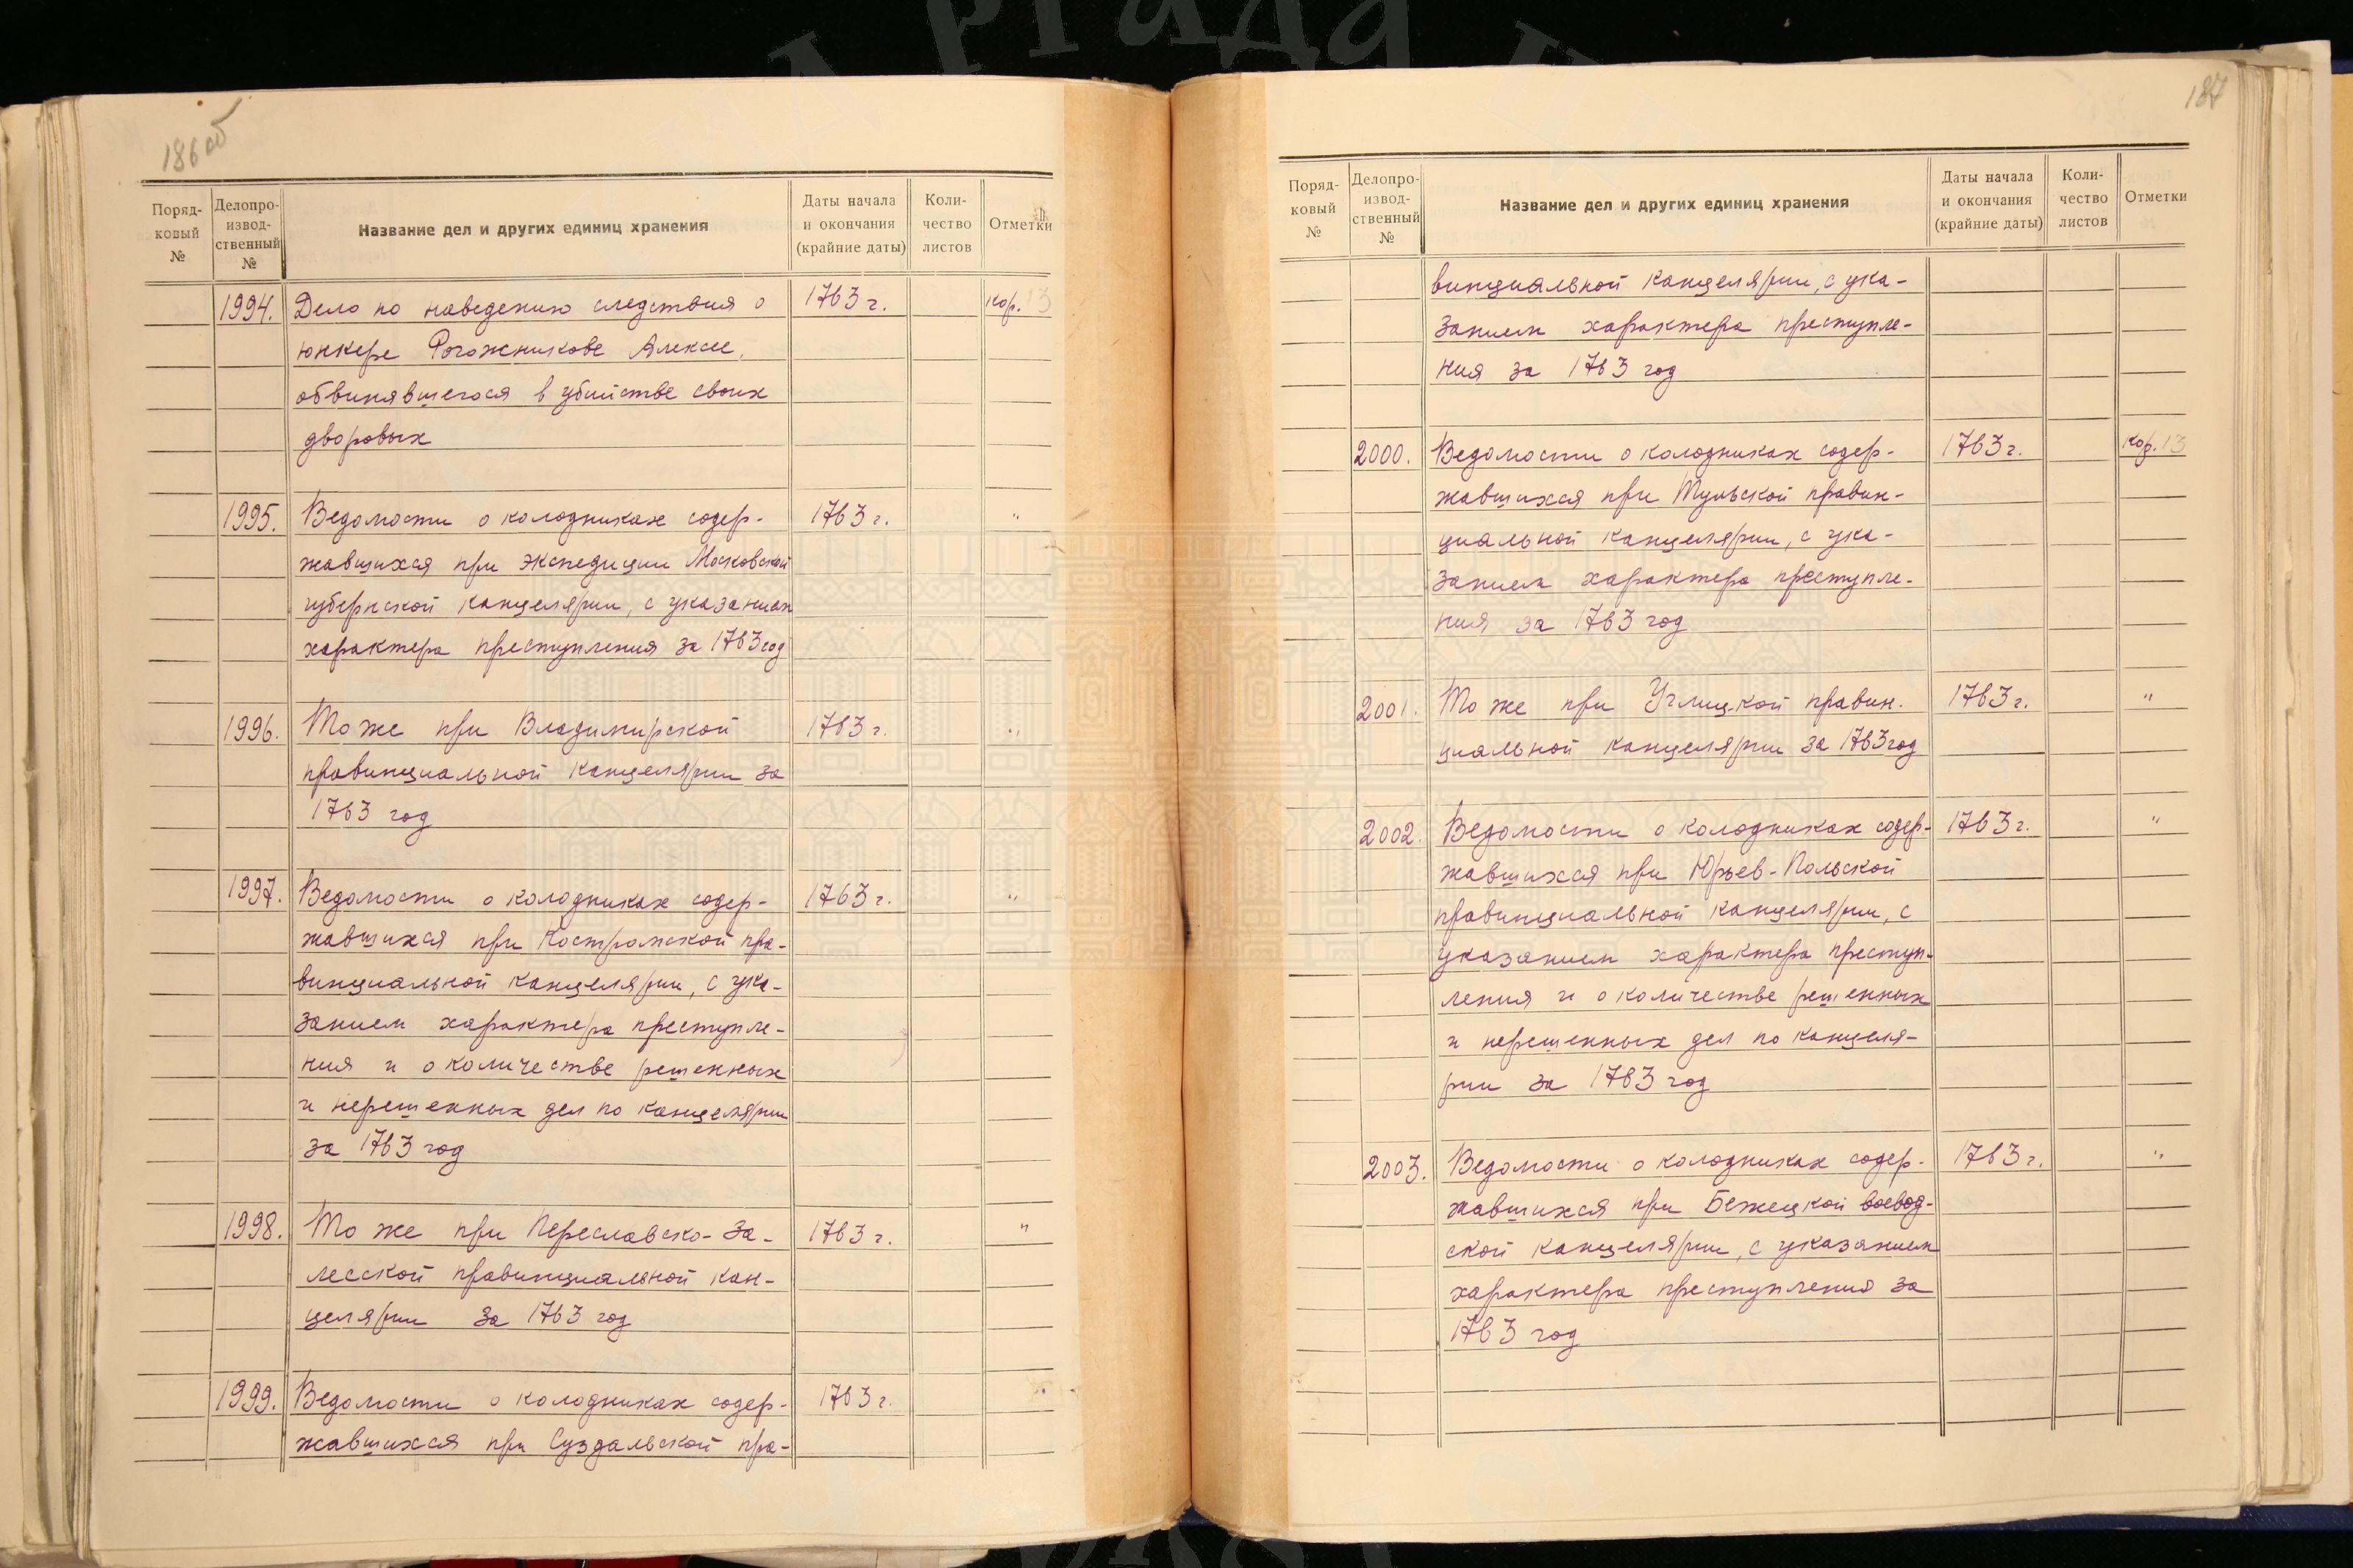 186 об
Поряд-
ковый
№
Делопро-
извод-
ственный
№
Название дел и других единиц хранения
Даты начала
и окончания
(крайние даты)
Коли-
чество
листов
Отметки
1994. Дело по наведению следствия о 1763 г. кор. 13
юнкере Рогожникове Алексее,
обвинявшегося в убийстве своих
дворовых
1995. Ведомости о колодниках содер- 1763 г. "
жавшихся при экспедиции Московской
губернской канцелярии, с указанием
характера преступления за 1763 год
1996. То же при Владимирской 1763 г. "
провинциальной канцелярии за
1763 год
1997. Ведомости о колодниках содер- 1763 г. "
жавшихся при Костромской про-
винциальной канцелярии, с ука-
занием характера преступле-
ния и о количестве решенных
и нерешенных дел по канцелярии
за 1763 год
1998. То же при Переславско-За- 1763 г. "
лесской провинциальной кан-
целярии за 1763 год
1999. Ведомости о колодниках содер- 1763 г. "
жавшихся при Суздальской про-
187
Поряд-
ковый
№
Делопро-
извод-
ственный
№
Название дел и других единиц хранения
Даты начала
и окончания
(крайние даты)
Коли-
чество
листов
Отметки
винциальной канцелярии, с ука-
занием характера преступле-
ния за 1763 год
2000. Ведомости о колодниках содер- 1763 г. кор. 13
жавшихся при Тульской провин-
циальной канцелярии, с ука-
занием характера преступле-
ния за 1763 год
2001. То же при Углицкой провин- 1763 г. "
циальной канцелярии за 1763 год
2002. Ведомости о колодниках содер- 1763 г. "
жавшихся при Юрьев-Польской
провинциальной канцелярии, с
указанием характера преступ-
ления и о количестве решенных
и нерешенных дел по канцеля-
рии за 1763 год
2003. Ведомости о колодниках содер- 1763 г. "
жавшихся при Бежецкой воевод-
ской канцелярии, с указанием
характера преступления за
1763 год